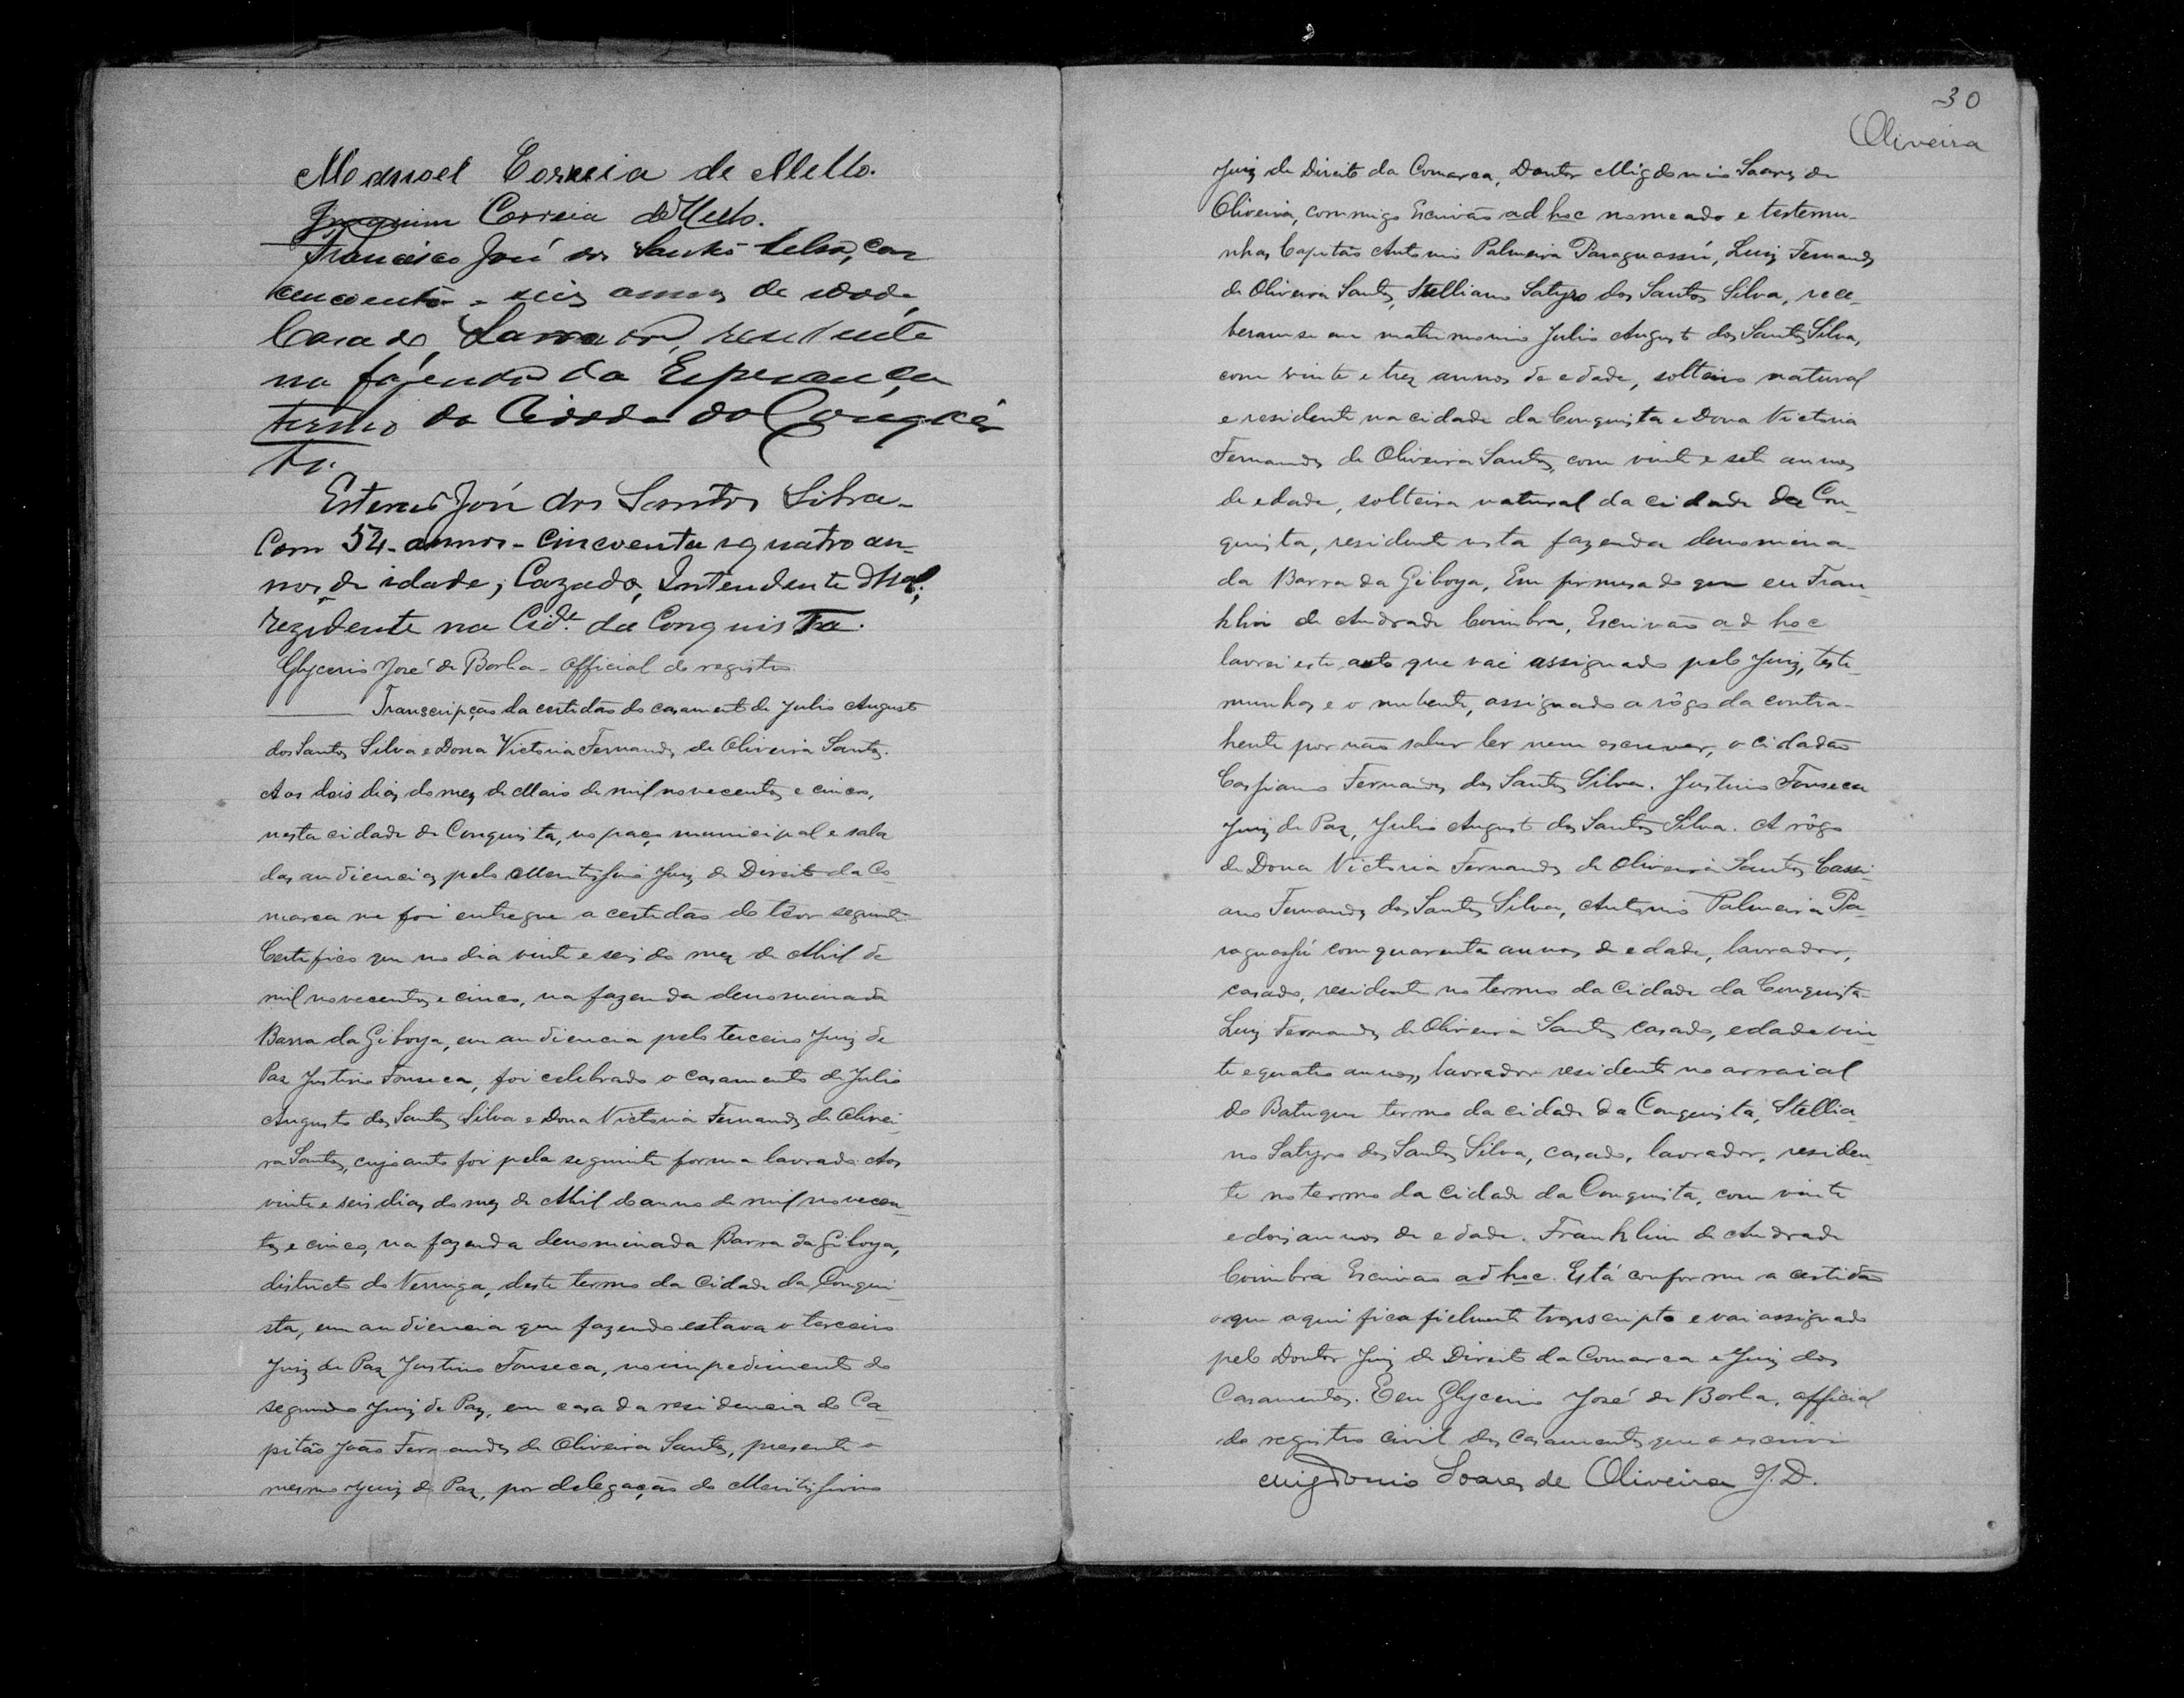 Manoel Correia de Mello.
Joaquim Correia de Mello.
Francisco José dos Santos Silva, com
cincoenta e seis annos de idade,
Casado, Lavrador, residente
na fazenda da Esperança
termo da Cidade da Conquis
ta.
Estevão José dos Santos Silva -
Com 54 - annos - cincoenta e quatro an-
nos de idade, Cazado, Intendente Mal,
rezidente na Cide. da Conquista.
Glycerio José de Borba - Official do registro
Transcripção da certidão do casamento de Julio Augusto
dos Santos Silva e Dona Victoria Fernandes de Oliveira Santos.
Aos dois dias do mez de Maio de mil novecentos e cinco,
nesta cidade da Conquista, no paço municipal e sala
das audiencias pelo Meritissimo Juiz de Direito da Co-
marca me foi entregue a certidão do têor seguinte
Certifico que no dia vinte e seis do mez de Abril de
mil novecentos e cinco, na fazenda denominada
Barra da Giboya, em audiencia pelo terceiro Juiz de
Paz Justino Fonseca, foi celebrado o casamento de Julio
Augusto dos Santos Silva e Dona Victoria Fernandes de Olivei-
ra Santos, cujo auto foi pela seguinte forma lavrado. Aos
vinte e seis dias do mez de Abril do anno de mil novecen-
tos e cinco, na fazenda denominada Barra da Giboya,
districto do Verruga, deste termo da Cidade da Conqui-
sta, em audiencia que fazendo estava o terceiro
Juiz de Paz Justino Fonseca, no impedimento do
segundo Juiz de Paz, em casa da residencia do Ca-
pitão João Fernandes de Oliveira Santos, presente o
mesmo Juiz de Paz, por delegação do Meritissimo
30
Oliveira
Juiz de Direito da Comarca, Doutor Migdonio Soares de
Oliveira, commigo Escrivão ad hoc nomeado e testemu-
nhas Capitão Antonio Palmeira Paraguassú, Luiz Fernandes
de Oliveira Santos, Stelliano Satyro dos Santos Silva, rece-
beram-se em matrimonio Julio Augusto dos Santos Silva,
com vinte e trez annos de edade, solteiro natural
e residente na cidade da Conquista e Dona Victoria
Fernandes de Oliveira Santos, com vinte e sete annos
de edade, solteira natural da cidade da Con-
quista, residente nesta fazenda denomina-
da Barra da Giboya. Em firmesa do que eu Fran-
klin de Andrade Coimbra, Escrivão ad hoc
lavrei este auto que vai assignado pelo Juiz, teste-
munhas e o nubente, assignado a rôgo da contra-
hente por não saber ler nem escrever, o cidadão
Cassiano Fernandes dos Santos Silva. Justino Fonseca
Juiz de Paz, Julio Augusto dos Santos Silva. A rôgo
de Dona Victoria Fernandes de Oliveira Santos Cassi-
ano Fernandes dos Santos Silva, Antonio Palmeira Pa-
raguassú com quarenta annos de edade, lavrador,
casado, residente no termo da Cidade da Conquista.
Luiz Fernandes de Oliveira Santos casado, edade vin-
te e quatro annos, lavrador residente no arraial
do Batuque termo da cidade da Conquista, Stellia-
no Satyro dos Santos Silva, casado, lavrador, residen-
te no termo da Cidade da Conquista, com vinte
e dois annos de edade. Franklin de Andrade
Coimbra Escrivão ad hoc. Está conforme a certidão
o que aqui fica fielmente transcripto e vai assignado
pelo Doutor Juiz de Direito da Comarca e Juiz dos
Casamentos. E eu Glycerio José de Borba, official
do registro civil dos casamentos que o escrevi
Migdonio Soares de Oliveira J. D.